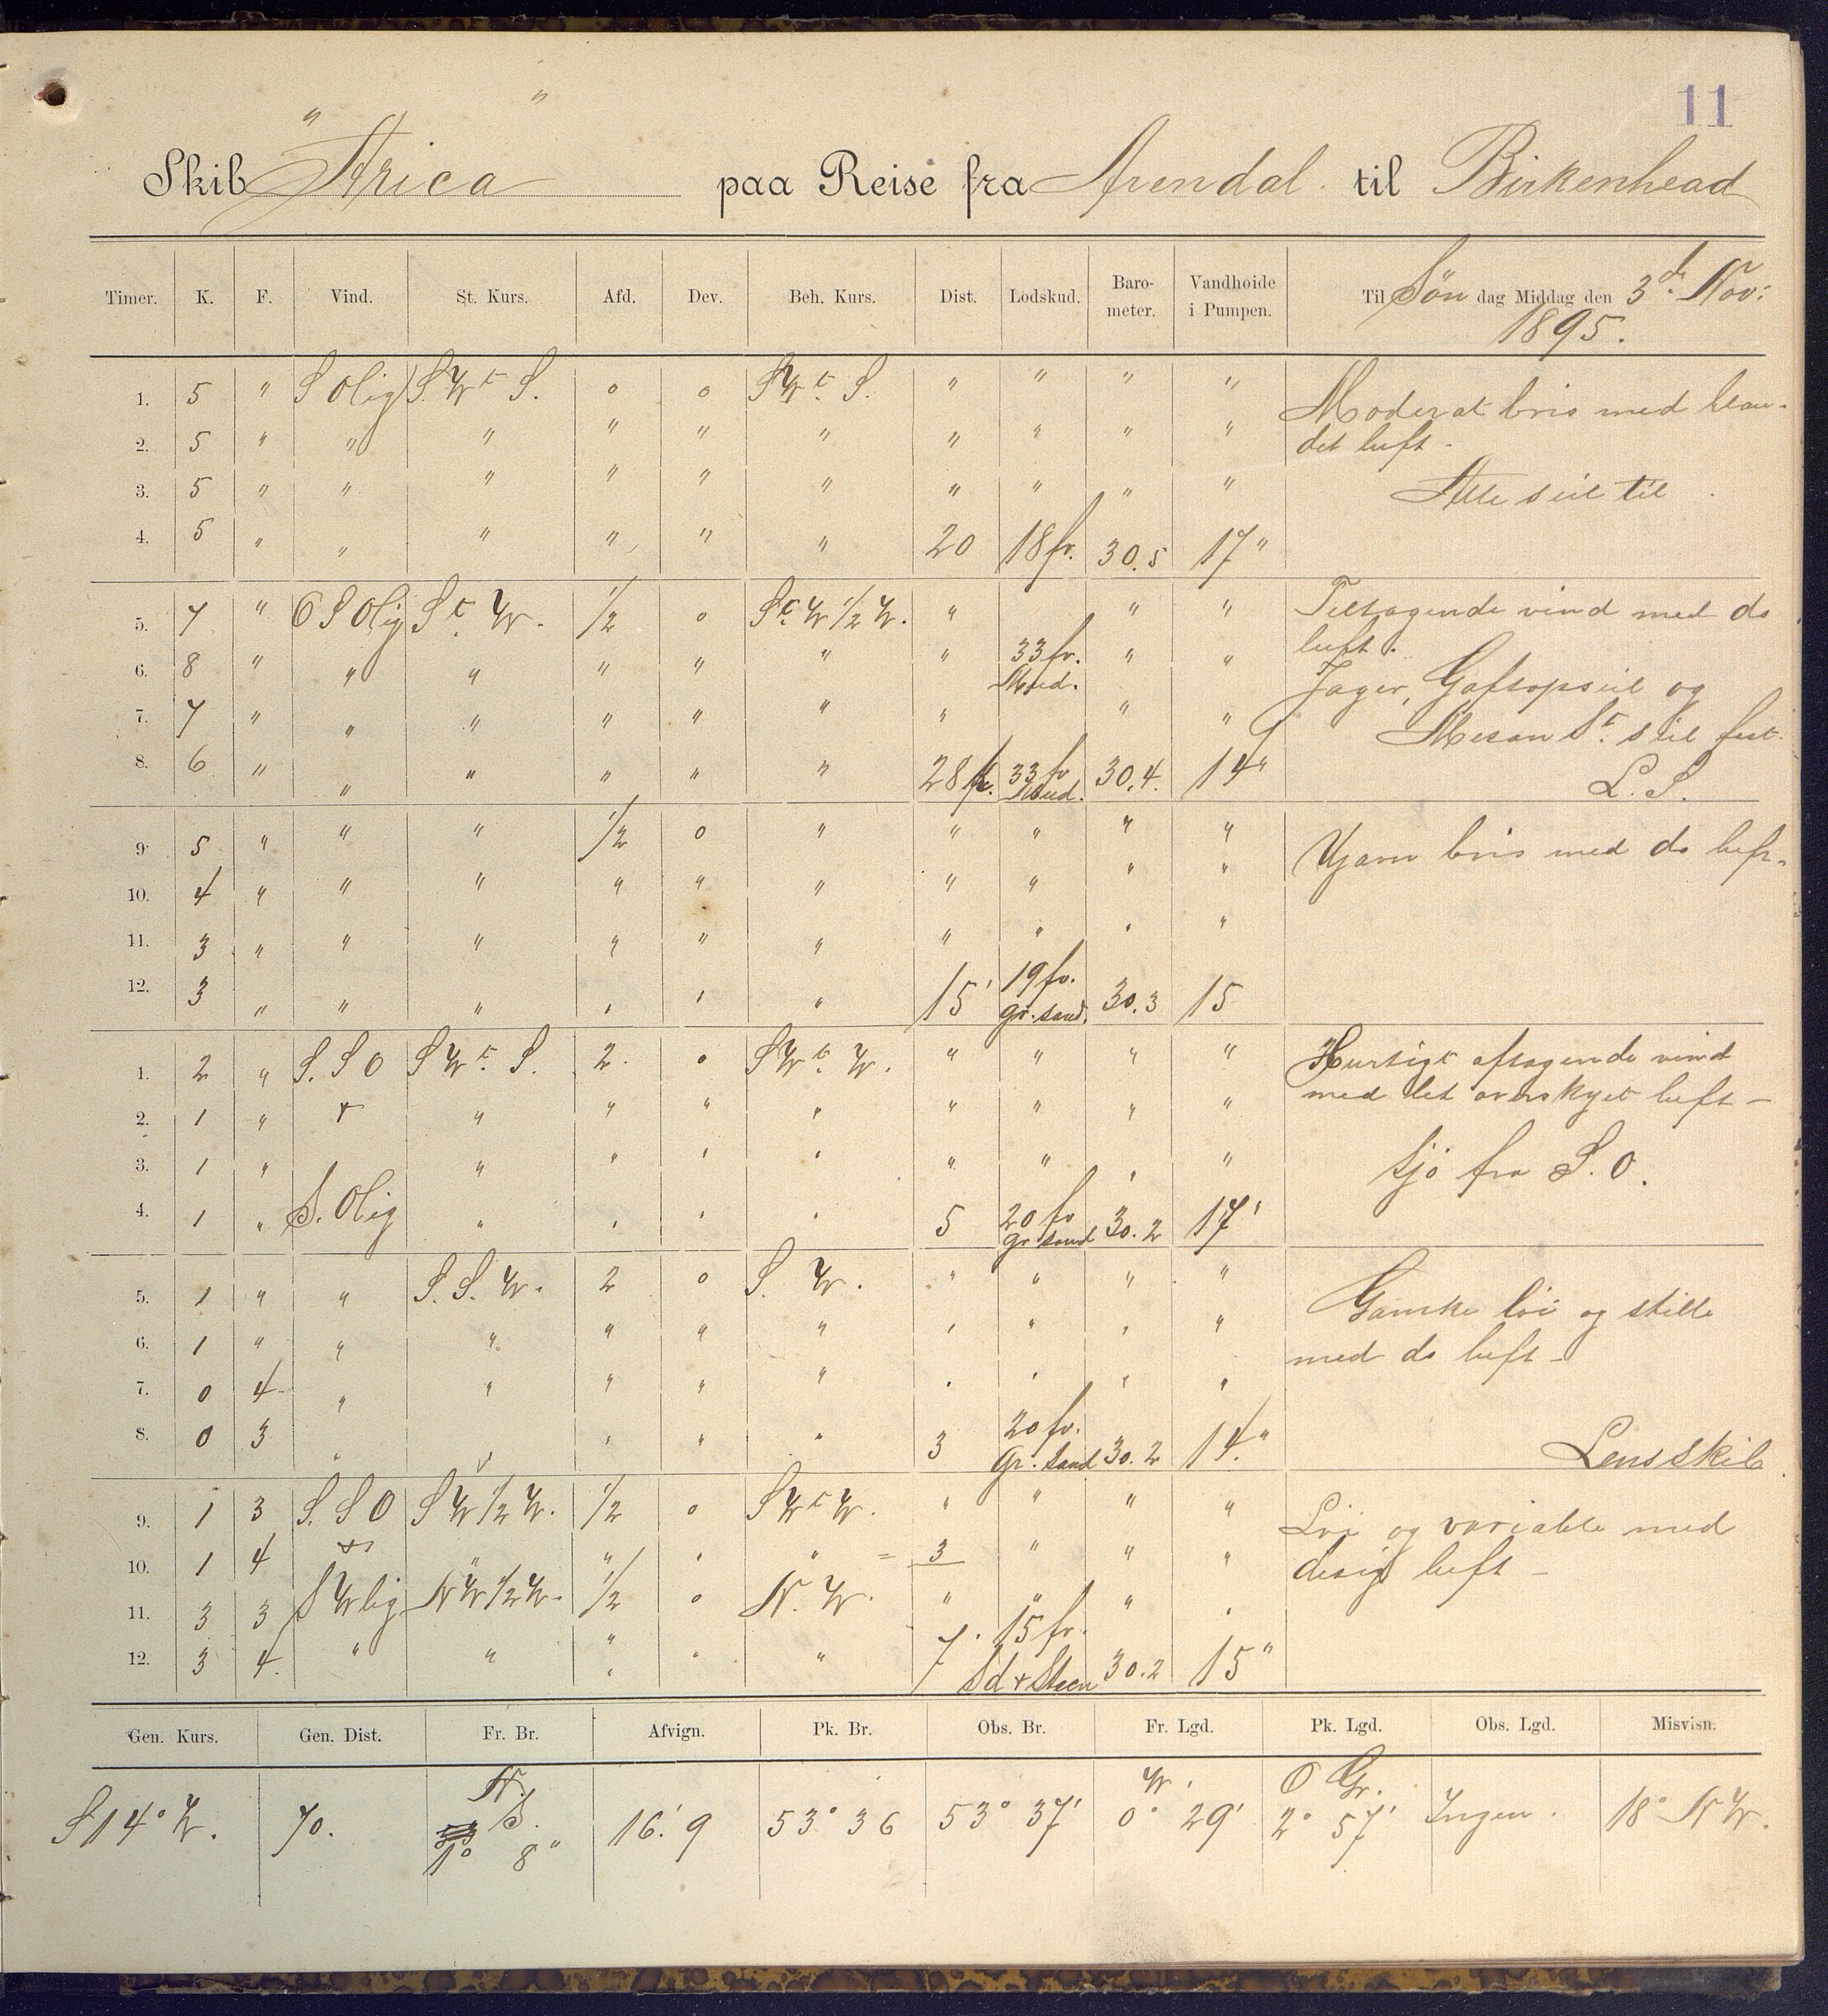 11
Skib "Arica" paa Reise fra Arendal til Birkenhead
Timer. K. F. Vind. St. Kurs. Afd. Dev. Beh. Kurs. Dist. Lodskud. Barometer. Vandhoide i Pumpen. Til Søn dag Middag den 3d. Nov: 1895.
1. 5 " S Olig S.W t S. 0 0 SW t. S. " " " " Moderat bris med blan-
2. 5 " " " " " " " " " " det luft.
3. 5 " " " " " " " " " " Alle seil til
4. 5 " " " " " " 20 18 fv. 30.5 17"
5. 7 " O S Olig S t. W. 1/2 0 S t. W 1/2 W. " " " Tiltagende vind med do
6. 8 " " " " " " " 33 fv. Mud. " " luft.
Jager, Gaftopseil og
7. 7 " " " " " " " " " Mesan St. seil fast.
8. 6 " " " " " " 28 33 fv Mud. 30.4. 14" L. S.
9. 5 " " " 1/2 0 " " " " " Ujavn bris med do luft.
10. 4 " " " " " " " " " "
11. 3 " " " " " " " " " "
12. 3 " " " " " " 15' 19 fv. gr. sand. 30.3 15
1. 2 " S. S O S W t. S. 2. 0 S W t. W. " " " " Hurtigt aftagende vind
2. 1 " " " " " " " " " " med let overskyet luft -
3. 1 " " " " " " " " " Sjø fra S. O.
4. 1 " S. Olig " " " " 5 20 fv gr sand 30.2 17"
5. 1 " " S. S. W. 2 0 S. W. " " " "
6. 1 " " " " " " " " " " Ganske løi og stille
7. 0 4 " " " " " " " " " med do luft -
8. 0 3 " " " " " 3 20 fv. Gr. Sand 30.2 14." Lens skib.
9. 1 3 S. S O S W 1/2 W. 1/2 0 S W t W. " " " " Løi og variable med
10. 1 4 " " " = 3 " " " disig luft -
11. 3 3 S W lig N W 1/2 W. 1/2 0 N. W. " " " "
12. 3 4. " " " " " 7 15 fv. Sd + Steen 30.2 15"
Gen. Kurs. Gen. Dist. Fr. Br. Afvign. Pk. Br. Obs. Br. Fr. Lgd. Pk. Lgd. Obs. Lgd. Misvisn.
N. W. O Gr.
S 14° W. 70. S. 1° 8" 16.'9 53° 36 53° 37' 0° 29' 2° 57' Ingen. 18° N W.